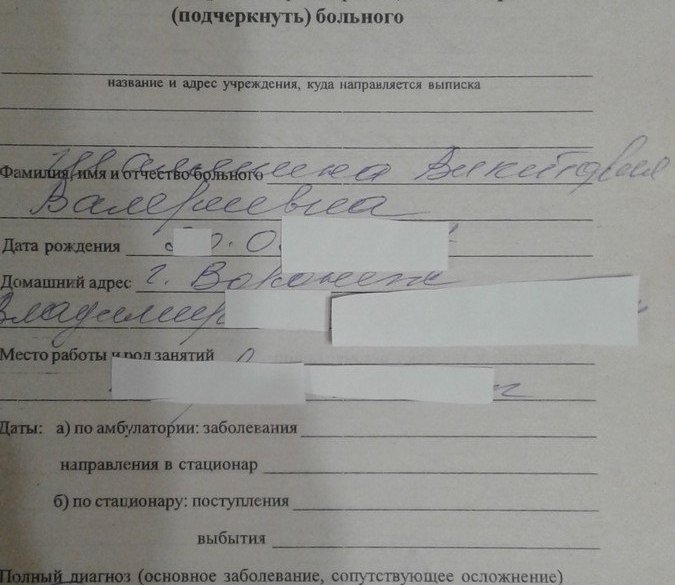 (подчеркнуть) больного
название и адрес учреждения, куда направляется выписка
Фамилия, имя и отчество больного Виктория
Валериевна
Дата рождения
Домашний адрес г. Воронеж
Владимир
Место работы и род занятий
Даты: а) по амбулатории: заболевания
направления в стационар
б) по стационару: поступления
выбытия
Полный диагноз (основное заболевание, сопутствующее осложнение)